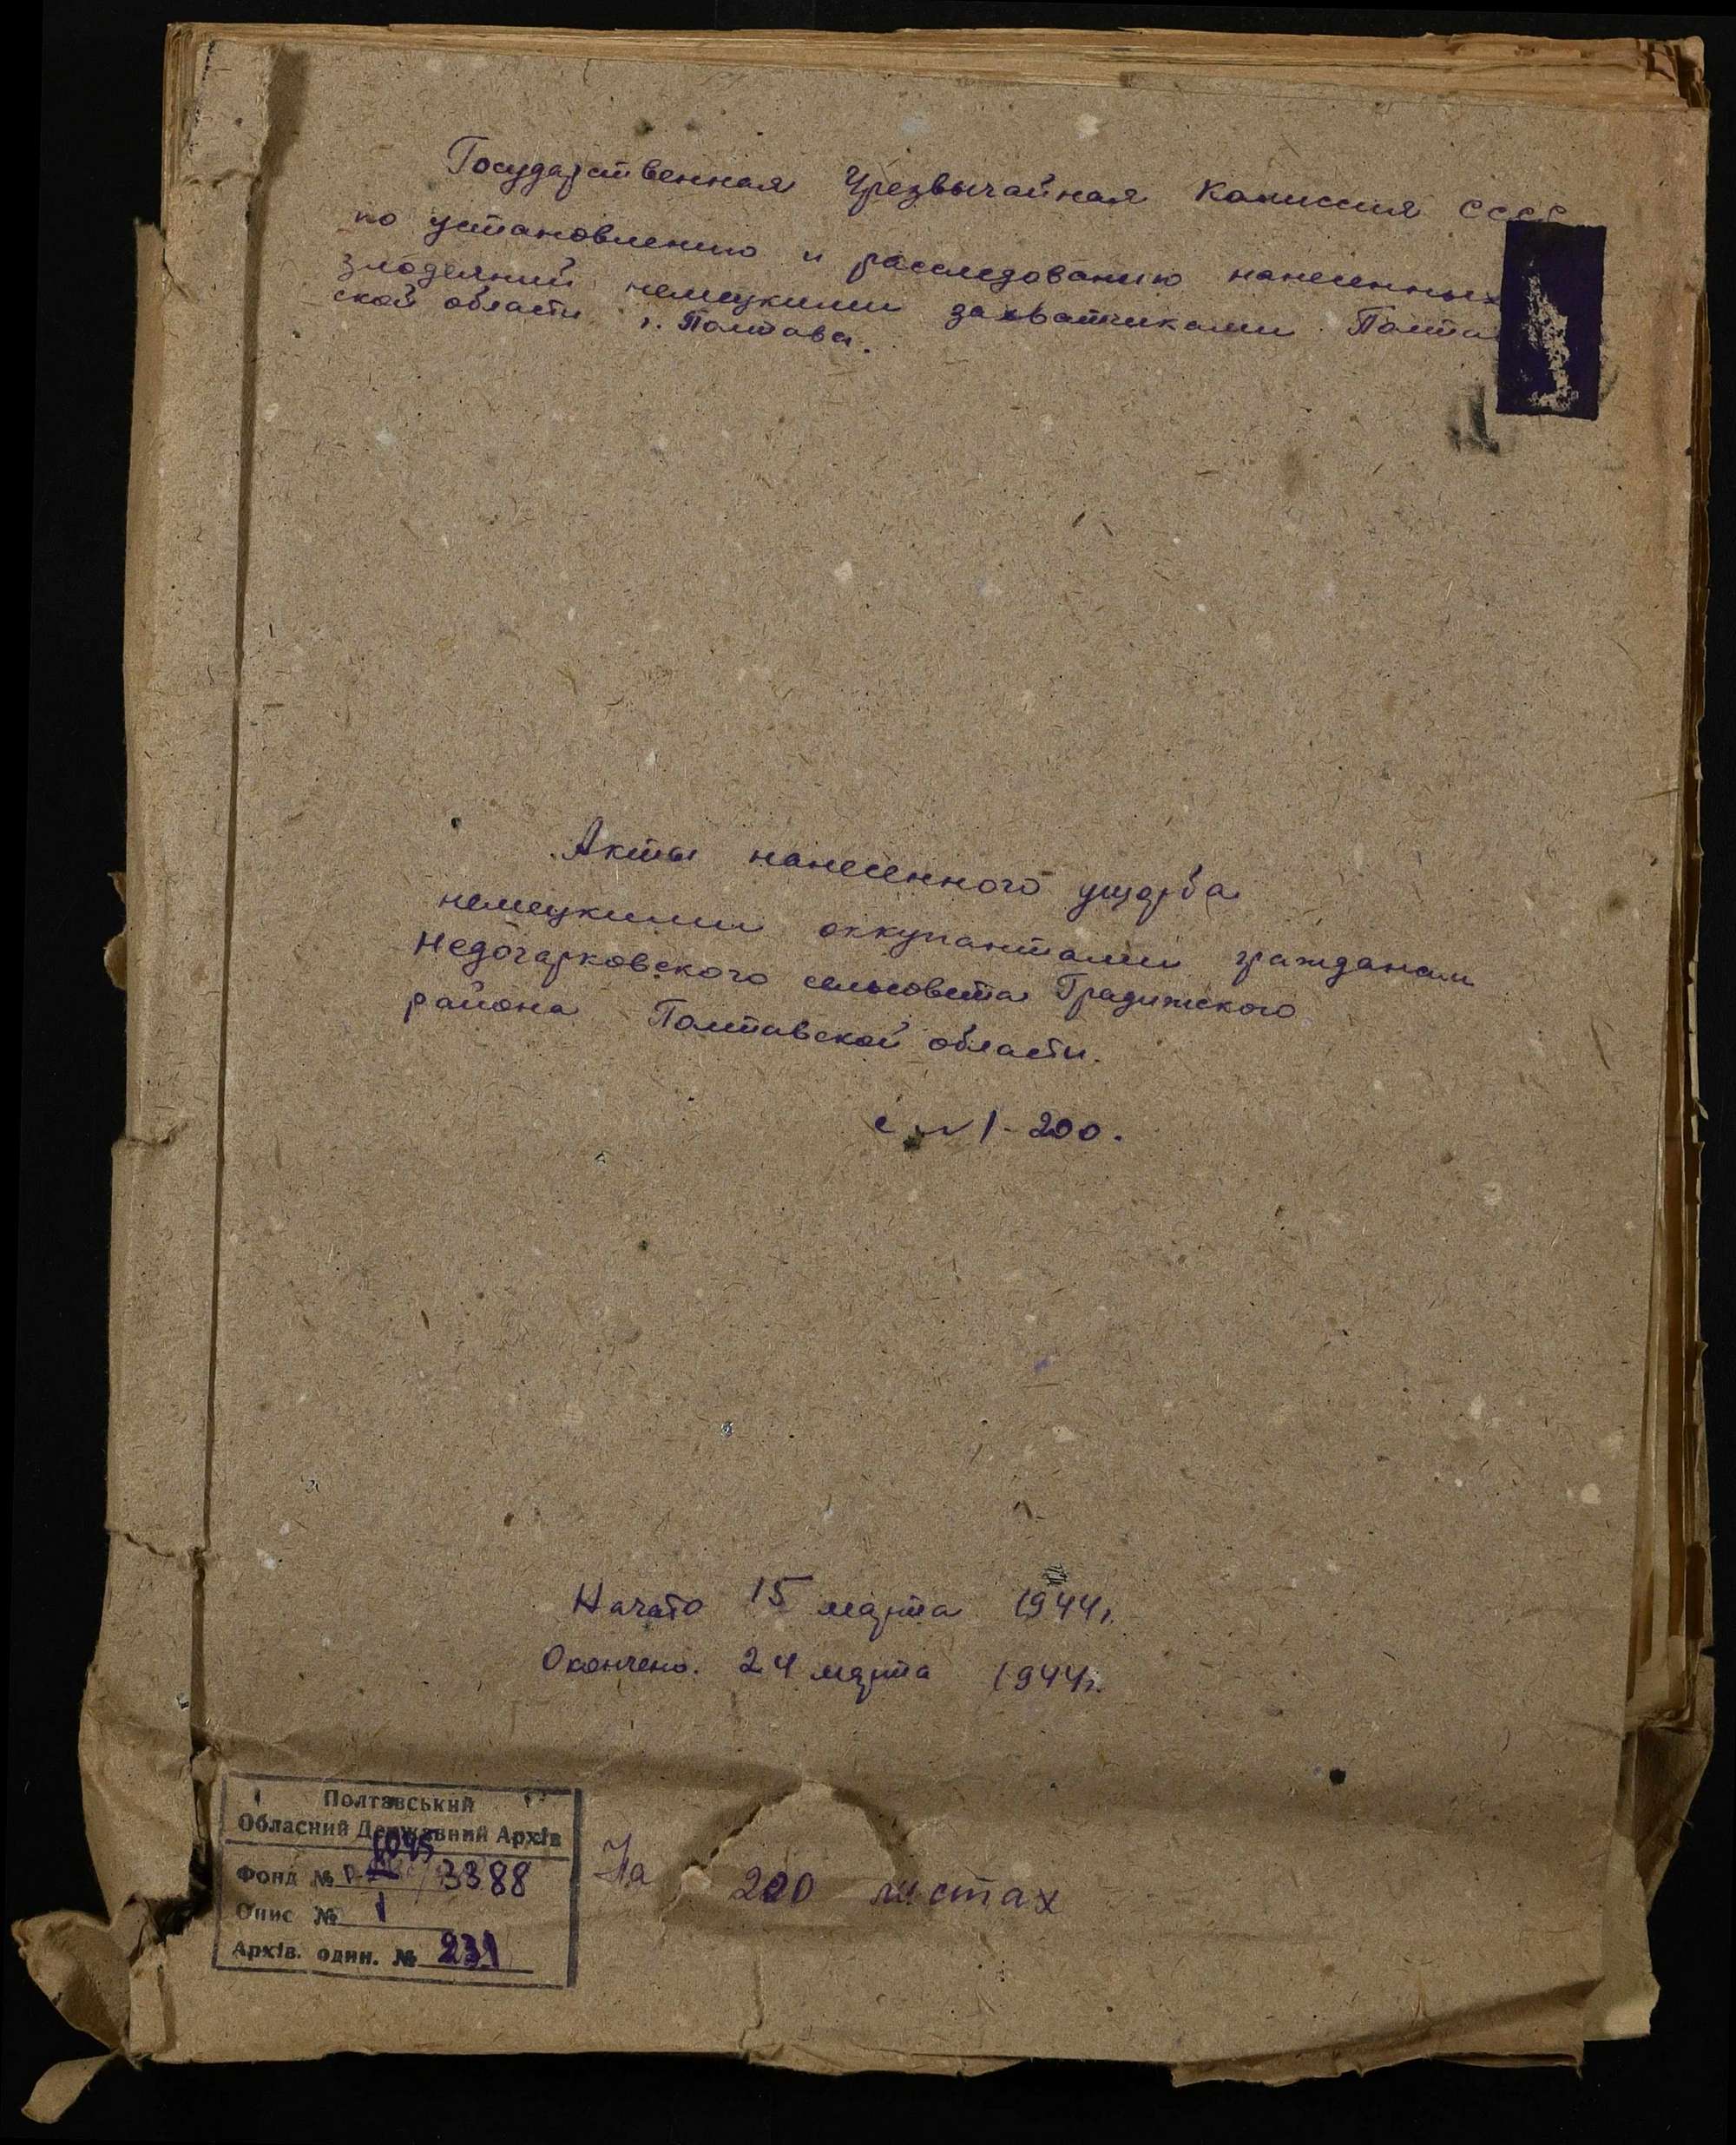 Государственная Чрезвычайная Комиссия СССР
по установлению и расследованию нанесенных
злодеяний немецкими захватчиками Полтав
ской области г. Полтава.
Акты нанесенного ущерба
немецкими оккупантами гражданам
Недогарковского сельсовета Градижского
района Полтавской области.
с № 1-200.
Начато 15 марта 1944г.
Окончено. 24 марта 1944г.
Полтавський
Обласний Державний Архів
1045
Фонд № Р- /3388
Опис № 1
Архів. один. № 231
На 200 листах